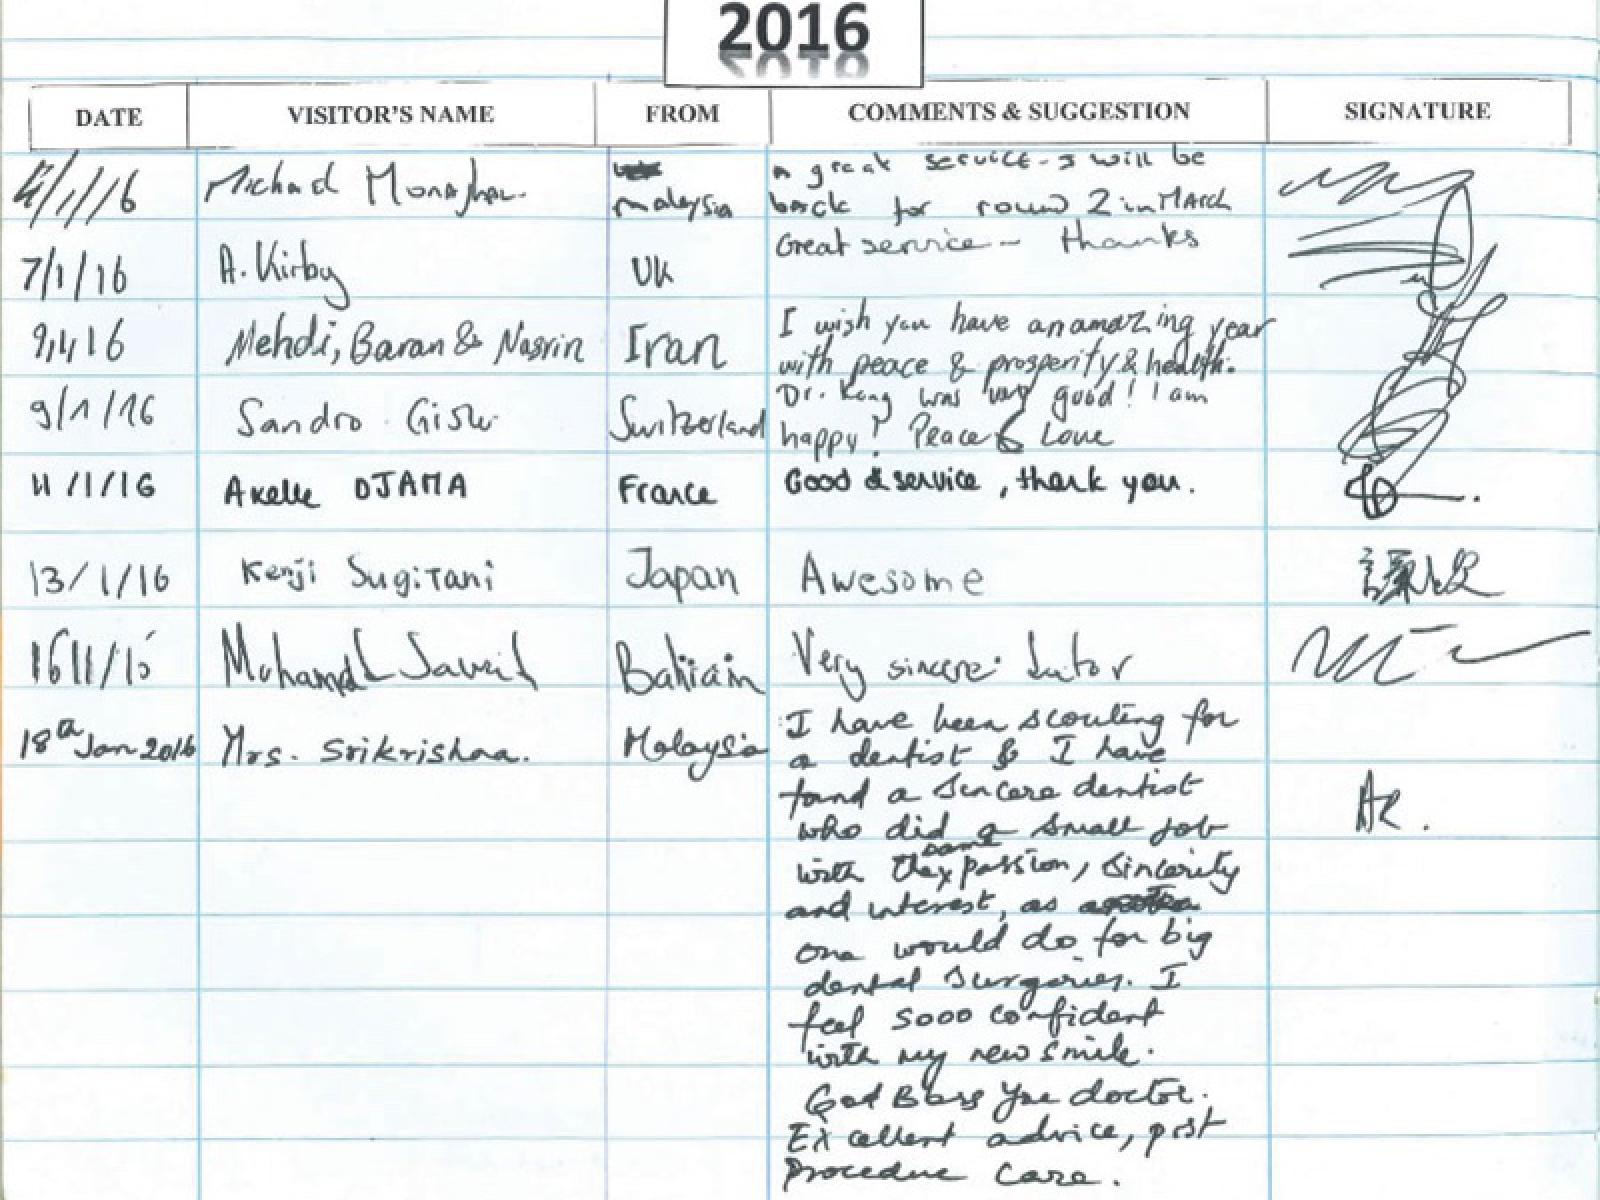 2016
DATE VISITOR'S NAME FROM COMMENTS & SUGGESTION SIGNATURE
/1/16 Michael Monaghan malaysia A great service - I will be
back for round 2 in MARCH
7/1/16 A. Kirby UK Great service - thanks
9,1,16 Mehdi, Baran & Nasrin Iran I wish you have an amazing year
with peace & prosperity & health.
9/1/16 Sandro Switzerland Dr. Kong was very good! I am
happy! Peace & Love
11/1/16 Axelle DJAMA France Good & service, thank you.
13/1/16 Kenji Sugitani Japan Awesome
16/1/16 Mohamed Bahrain Very sincere
18th Jan 2016 Mrs. Srikrishna. Malaysia I have been scouting for
a dentist & I have
found a sincere dentist
who did a small job
with the same passion, sincerity
and interest, as
one would do for big
dental surgeries. I
feel sooo confident
with my new smile.
God Bless You doctor.
Excellent advice, post
procedure care.